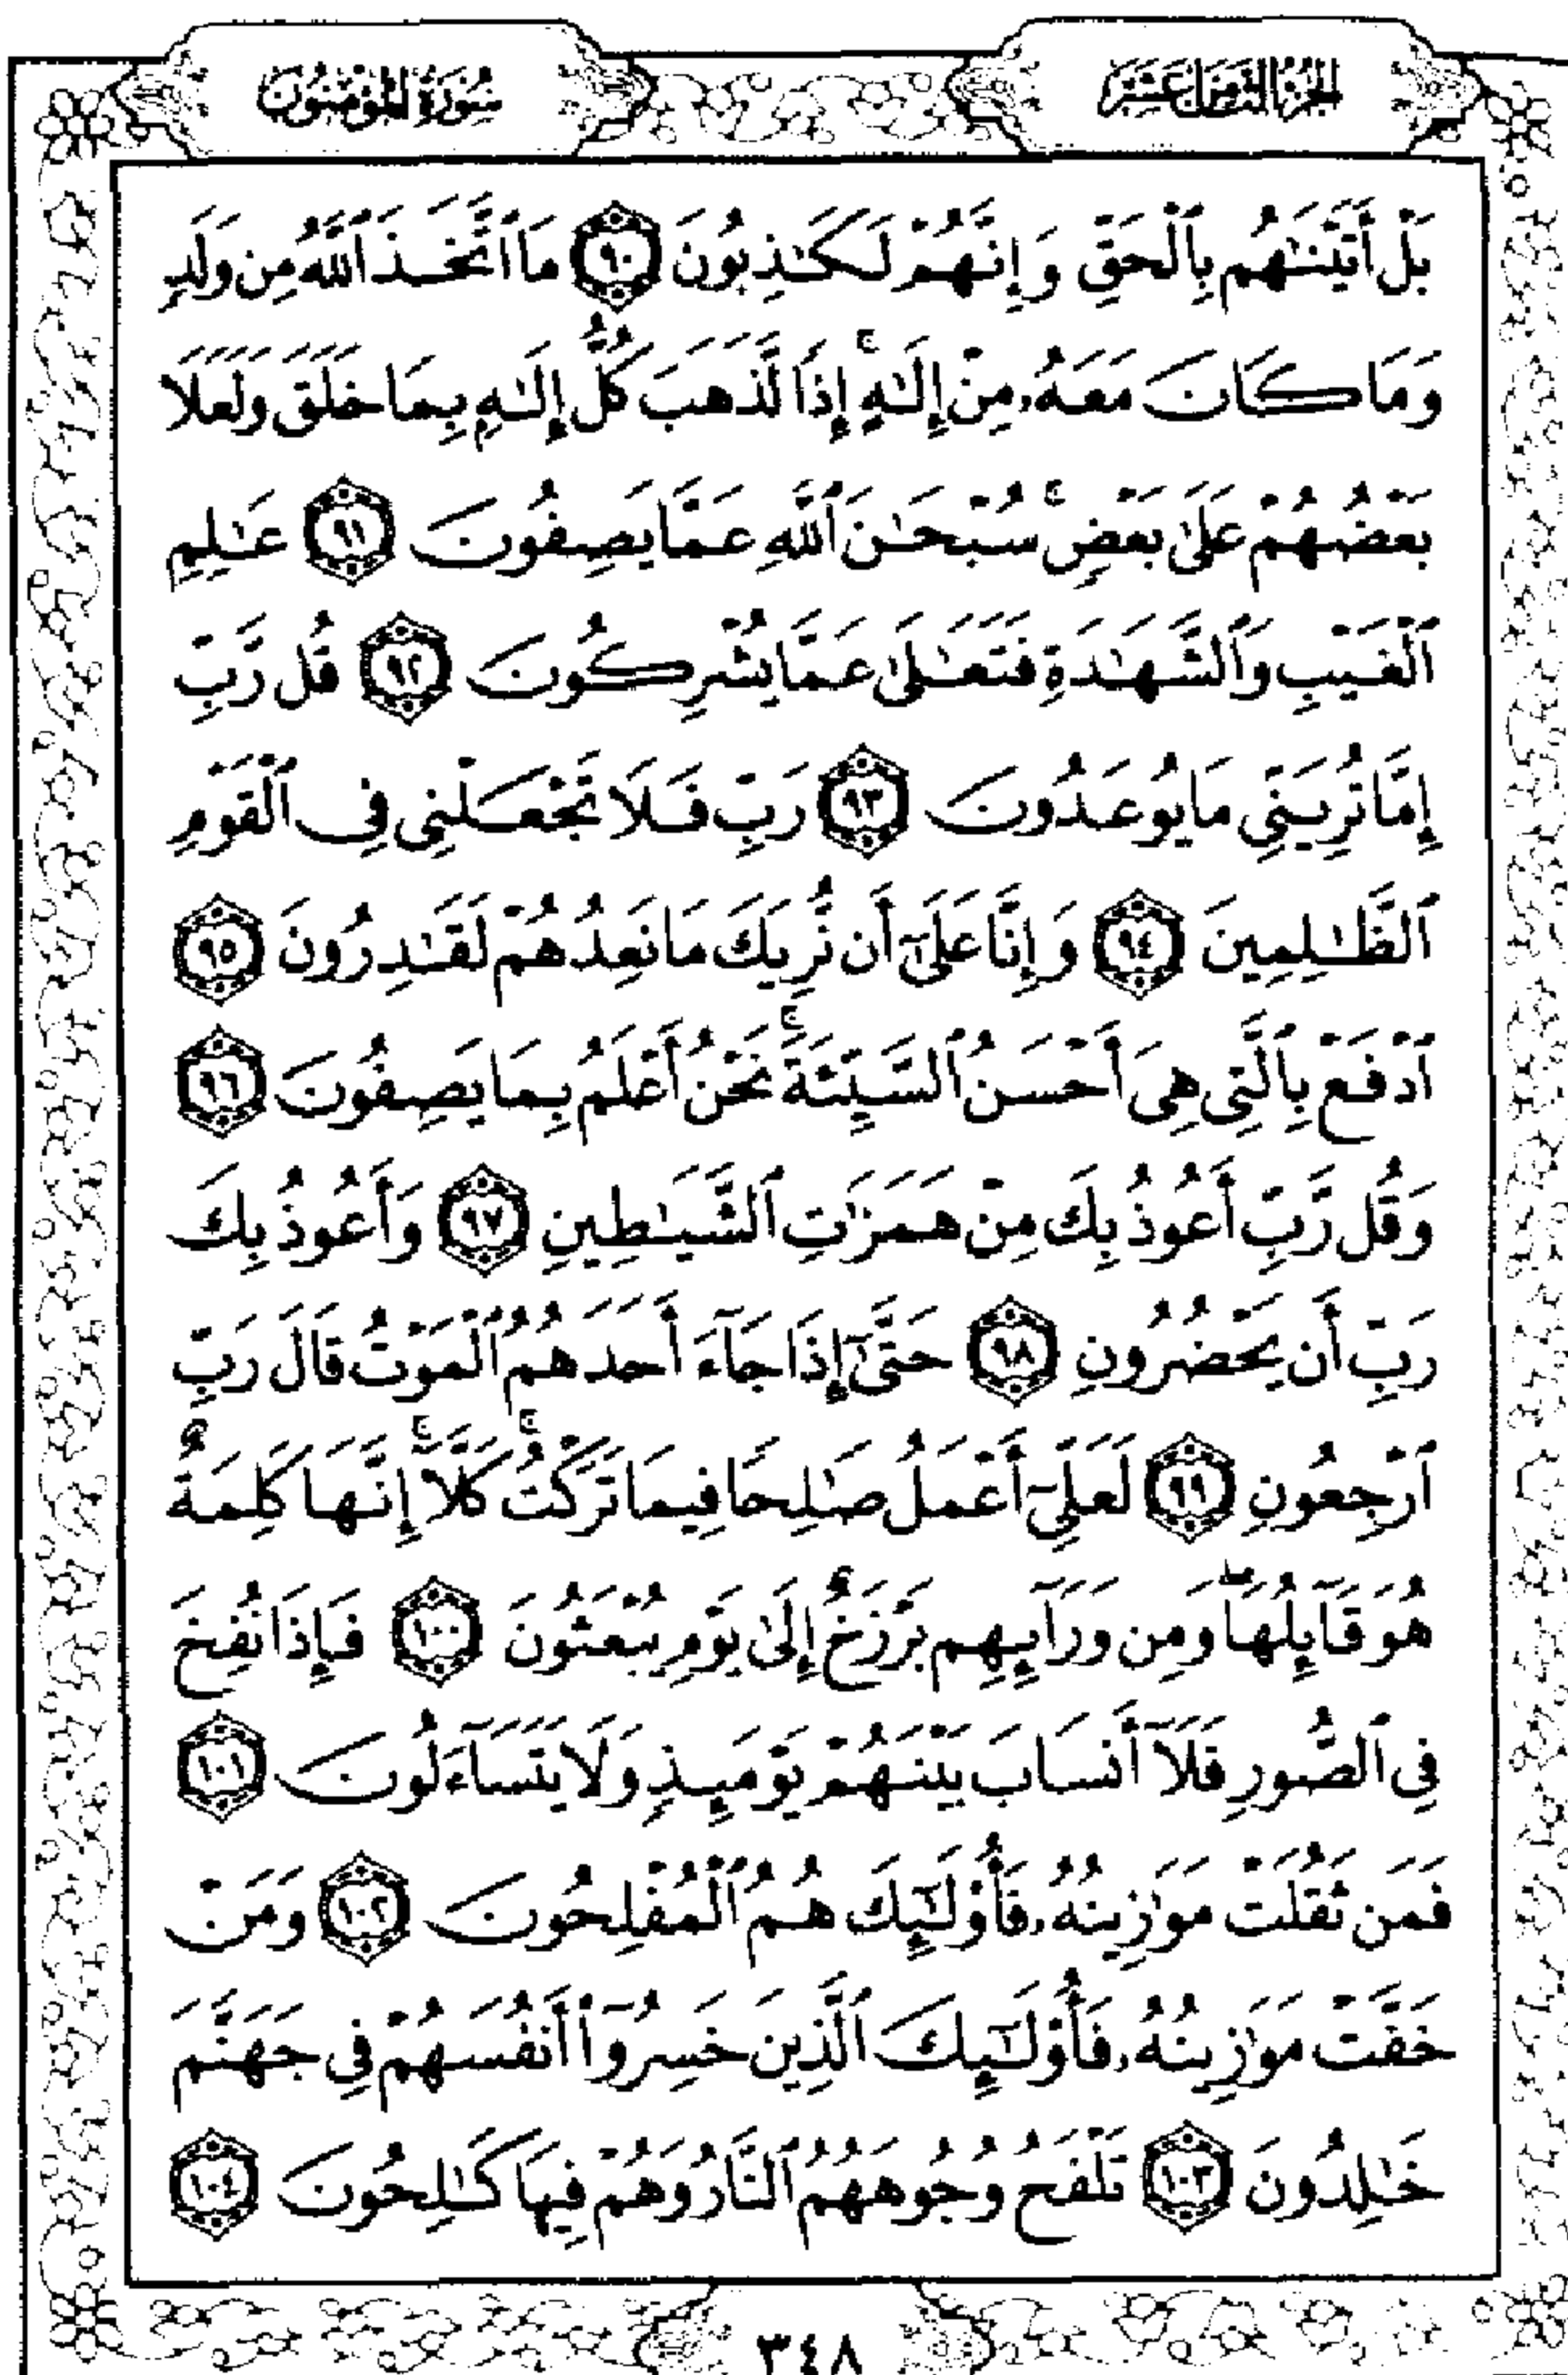 الجزء الثامن عشر
سورة المؤمنون
بَلْ أَتَيْنَٰهُم بِٱلْحَقِّ وَإِنَّهُمْ لَكَٰذِبُونَ ٩٠ مَا ٱتَّخَذَ ٱللَّهُ مِن وَلَدٍ
وَمَا كَانَ مَعَهُۥ مِنْ إِلَٰهٍۚ إِذًا لَّذَهَبَ كُلُّ إِلَٰهٍۭ بِمَا خَلَقَ وَلَعَلَا
بَعْضُهُمْ عَلَىٰ بَعْضٍۚ سُبْحَٰنَ ٱللَّهِ عَمَّا يَصِفُونَ ٩١ عَٰلِمِ
ٱلْغَيْبِ وَٱلشَّهَٰدَةِ فَتَعَٰلَىٰ عَمَّا يُشْرِكُونَ ٩٢ قُل رَّبِّ
إِمَّا تُرِيَنِّى مَا يُوعَدُونَ ٩٣ رَبِّ فَلَا تَجْعَلْنِى فِى ٱلْقَوْمِ
ٱلظَّٰلِمِينَ ٩٤ وَإِنَّا عَلَىٰٓ أَن نُّرِيَكَ مَا نَعِدُهُمْ لَقَٰدِرُونَ ٩٥
ٱدْفَعْ بِٱلَّتِى هِىَ أَحْسَنُ ٱلسَّيِّئَةَۚ نَحْنُ أَعْلَمُ بِمَا يَصِفُونَ ٩٦
وَقُل رَّبِّ أَعُوذُ بِكَ مِنْ هَمَزَٰتِ ٱلشَّيَٰطِينِ ٩٧ وَأَعُوذُ بِكَ
رَبِّ أَن يَحْضُرُونِ ٩٨ حَتَّىٰٓ إِذَا جَآءَ أَحَدَهُمُ ٱلْمَوْتُ قَالَ رَبِّ
ٱرْجِعُونِ ٩٩ لَعَلِّىٓ أَعْمَلُ صَٰلِحًا فِيمَا تَرَكْتُۚ كَلَّآۚ إِنَّهَا كَلِمَةٌ
هُوَ قَآئِلُهَاۖ وَمِن وَرَآئِهِم بَرْزَخٌ إِلَىٰ يَوْمِ يُبْعَثُونَ ١٠٠ فَإِذَا نُفِخَ
فِى ٱلصُّورِ فَلَآ أَنسَابَ بَيْنَهُمْ يَوْمَئِذٍ وَلَا يَتَسَآءَلُونَ ١٠١
فَمَن ثَقُلَتْ مَوَٰزِينُهُۥ فَأُو۟لَٰٓئِكَ هُمُ ٱلْمُفْلِحُونَ ١٠٢ وَمَنْ
خَفَّتْ مَوَٰزِينُهُۥ فَأُو۟لَٰٓئِكَ ٱلَّذِينَ خَسِرُوٓا۟ أَنفُسَهُمْ فِى جَهَنَّمَ
خَٰلِدُونَ ١٠٣ تَلْفَحُ وُجُوهَهُمُ ٱلنَّارُ وَهُمْ فِيهَا كَٰلِحُونَ ١٠٤
٣٤٨